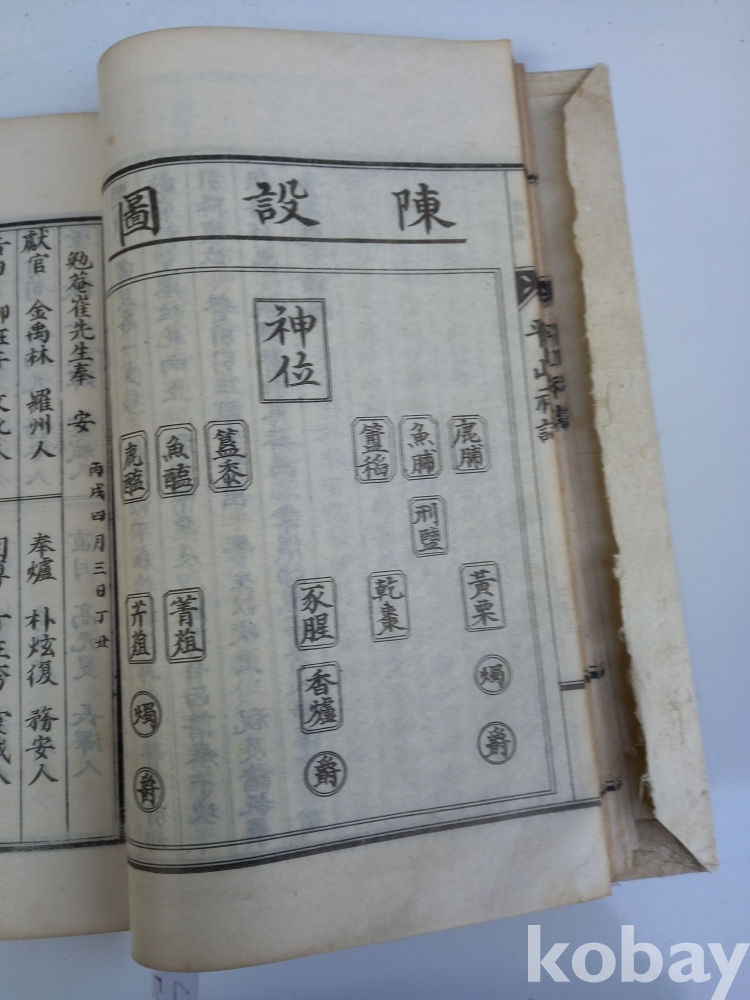 陳設圖
神位
鹿脯
魚脯
簠稻
簋黍
魚醢
鹿醢
刑鹽
黃栗
乾棗
豕腥
菁菹
芹菹
香爐
燭
燭
爵
爵
爵
勉菴崔先生奉安
丙戌四月三日丁丑
獻官 金禹林 羅州人
奉爐 朴炫復 務安人
kobay